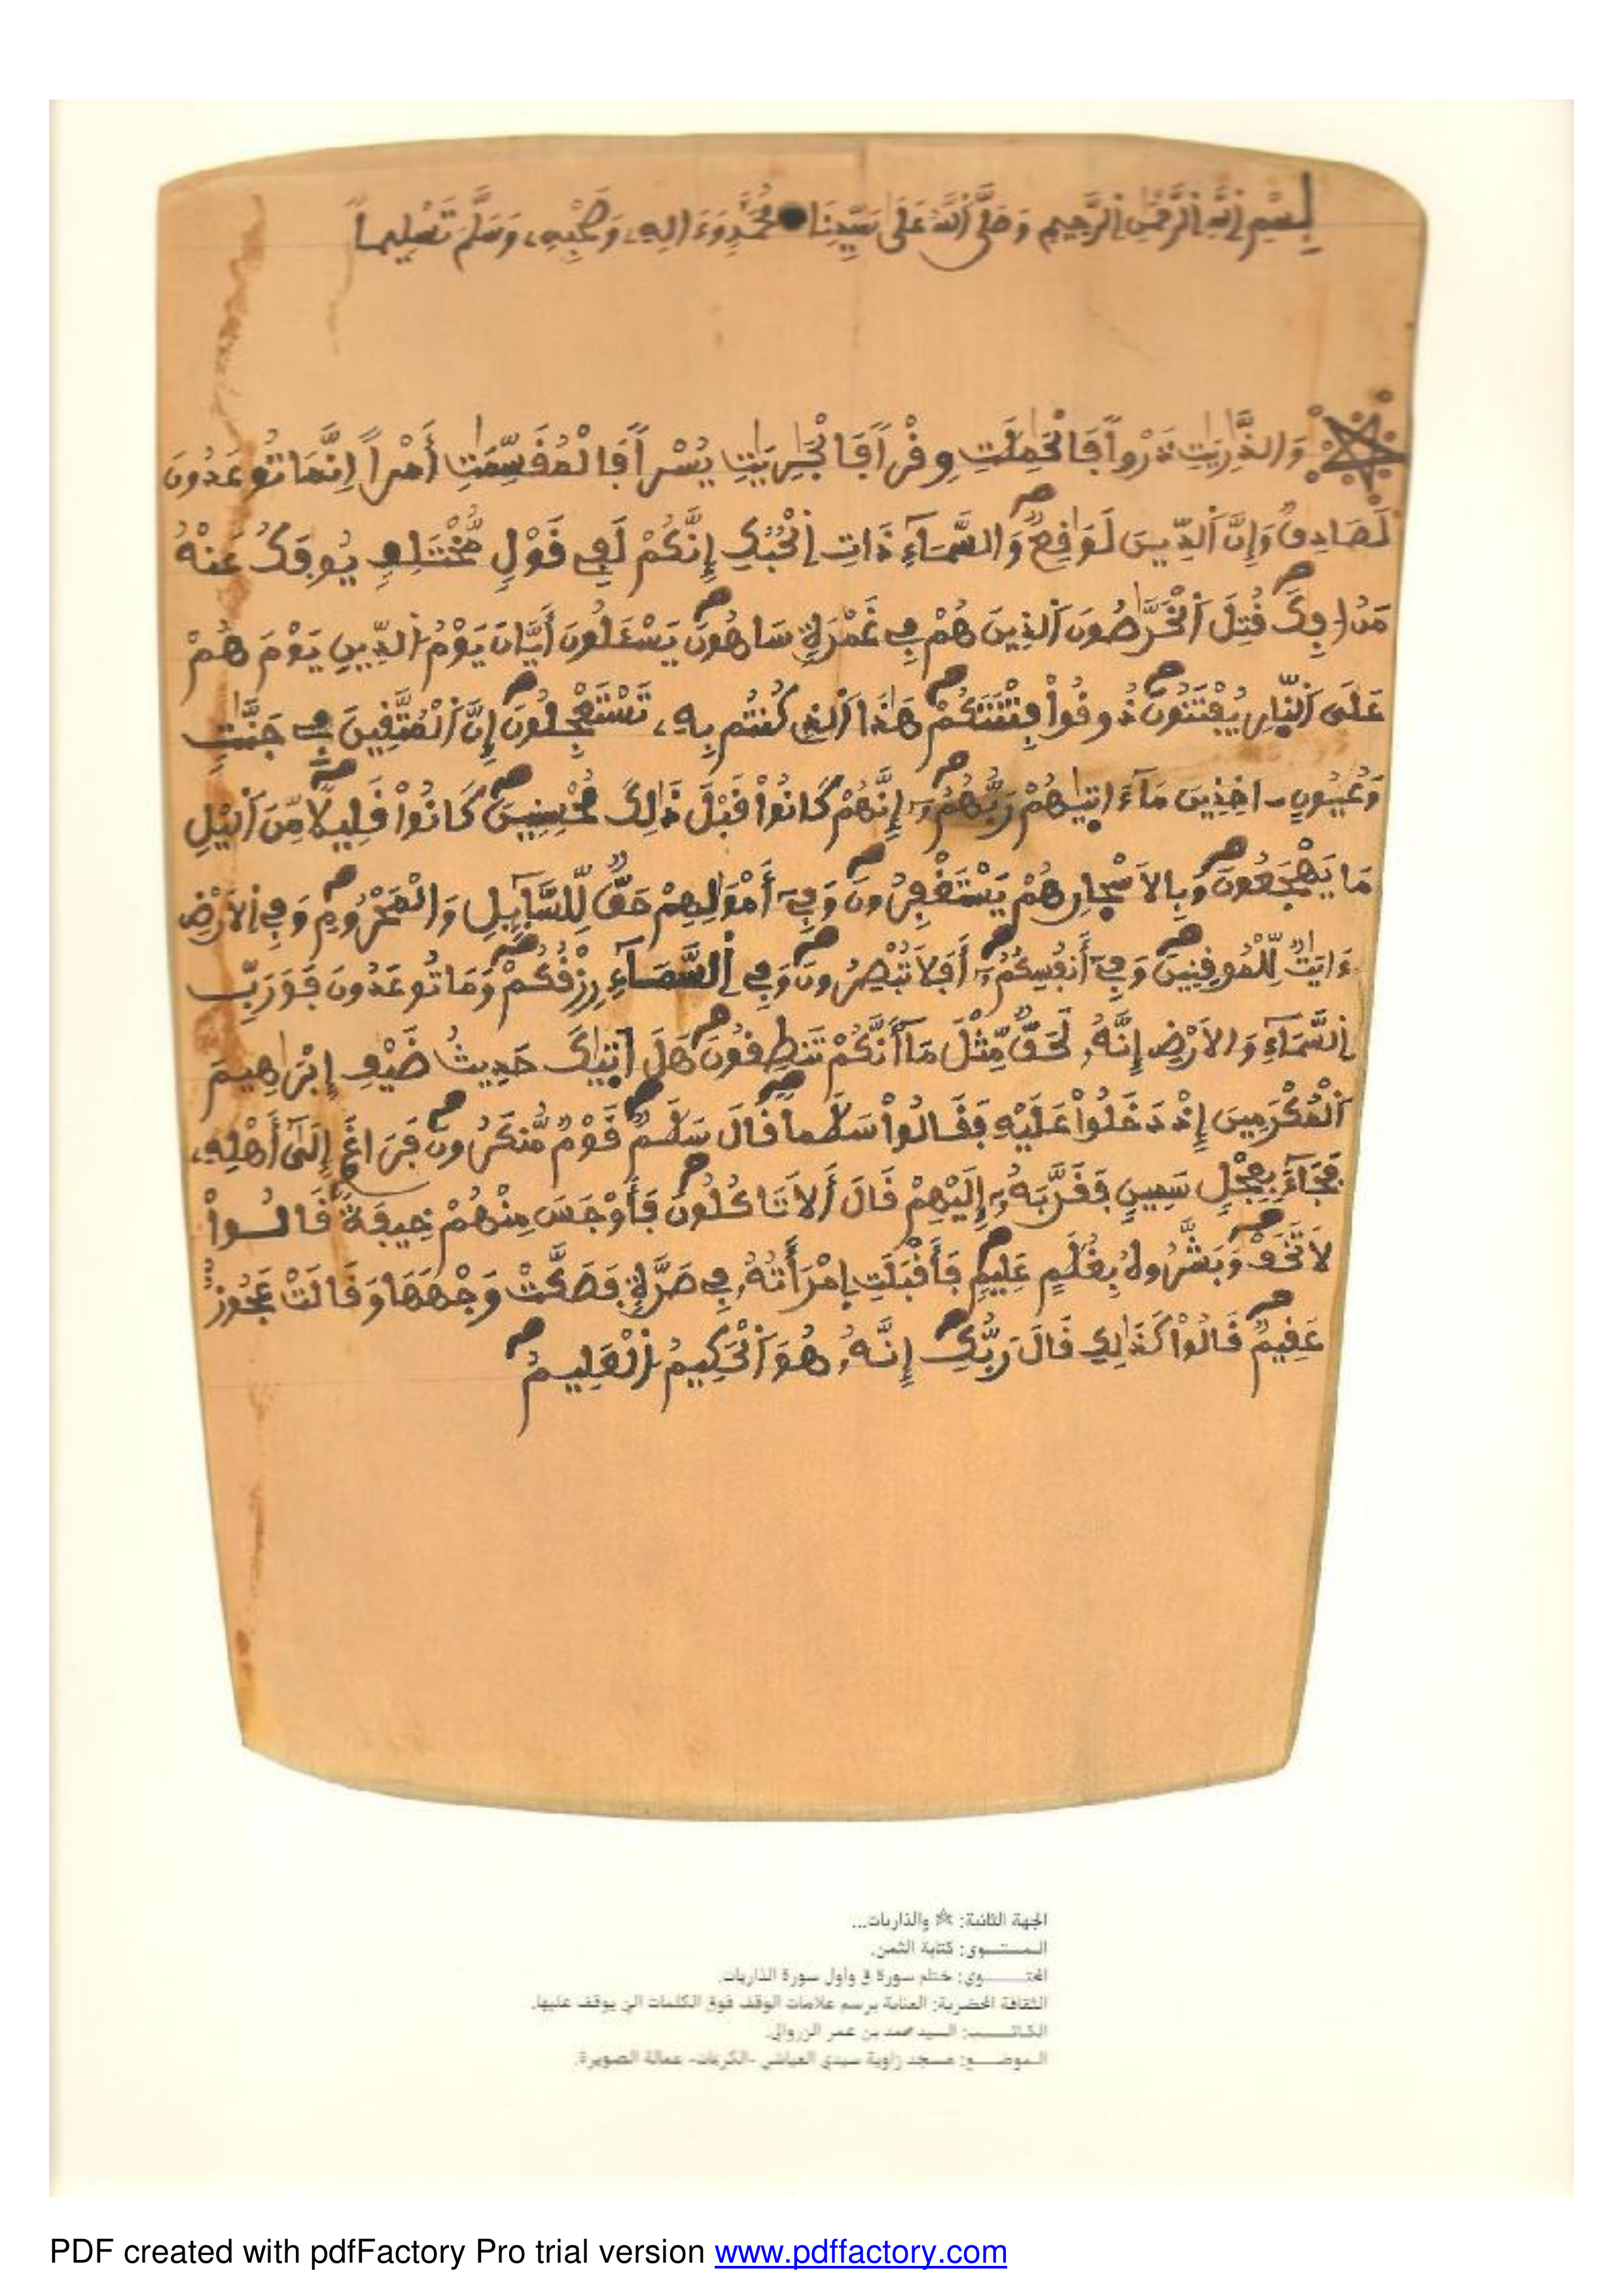 بِسْمِ اِ۬للَّهِ اِ۬لرَّحْمَٰنِ اِ۬لرَّحِيمِ وَصَلَّى اَ۬للَّهُ عَلَى سَيِّدِنَا مُحَمَّدٍ وَءَالِهِۦ وَصَحْبِهِۦ وَسَلَّمَ تَسْلِيماً
وَالذَّٰرِيَٰتِ ذَرْواٗ فَالْحَٰمِلَٰتِ وِقْراٗ فَالْجَٰرِيَٰتِ يُسْراٗ فَالْمُقَسِّمَٰتِ أَمْراً اِنَّمَا تُوعَدُونَ
لَصَادِقٞ وَإِنَّ اَ۬لدِّينَ لَوَٰقِعٞ وَالسَّمَآءِ ذَاتِ اِ۬لْحُبُكِ إِنَّكُمْ لَفِے قَوْلٖ مُّخْتَلِفٖ يُوفَكُ عَنْهُ
مَنُ ا۟فِكَ قُتِلَ اَ۬لْخَرَّٰصُونَ اَ۬لذِينَ هُمْ فِے غَمْرَةٖ سَاهُونَ يَسْـَٔلُونَ أَيَّانَ يَوْمُ اُ۬لدِّينِ يَوْمَ هُمْ
عَلَى اَ۬لنّ۪ارِ يُفْتَنُونَ ذُوقُواْ فِتْنَتَكُمْ هَٰذَا اَ۬لذِے كُنتُم بِهِۦ تَسْتَعْجِلُونَ إِنَّ اَ۬لْمُتَّقِينَ فِے جَنَّٰتٖ
وَعُيُونٍ ـ اخِذِينَ مَآ ءَات۪يٰهُمْ رَبُّهُمُۥٓ إِنَّهُمْ كَانُواْ قَبْلَ ذَٰلِكَ مُحْسِنِينَ كَانُواْ قَلِيلاٗ مِّنَ اَ۬ليْلِ
مَا يَهْجَعُونَ وَبِالَاسْح۪ارِ هُمْ يَسْتَغْفِرُونَ وَفِےٓ أَمْوَٰلِهِمْ حَقّٞ لِّلسَّآئِلِ وَالْمَحْرُومِ وَفِے اِ۬لَارْضِ
ءَايَٰتٞ لِّلْمُوقِنِينَ وَفِےٓ أَنفُسِكُمُۥٓ أَفَلَا تُبْصِرُونَ وَفِے اِ۬لسَّمَآءِ رِزْقُكُمْ وَمَا تُوعَدُونَ فَوَرَبِّ
اِ۬لسَّمَآءِ وَالَارْضِ إِنَّهُۥ لَحَقّٞ مِّثْلَ مَآ أَنَّكُمْ تَنطِقُونَ هَلَ اَت۪يٰكَ حَدِيثُ ضَيْفِ إِبْرَٰهِيمَ
اَ۬لْمُكْرَمِينَ إِذْ دَخَلُواْ عَلَيْهِ فَقَالُواْ سَلَٰماٗ قَالَ سَلَٰمٞ قَوْمٞ مُّنكَرُونَ فَرَاغَ إِلَىٰٓ أَهْلِهِۦ
فَجَآءَ بِعِجْلٖ سَمِينٖ فَقَرَّبَهُۥٓ إِلَيْهِمْ قَالَ أَلَا تَاكُلُونَ فَأَوْجَسَ مِنْهُمْ خِيفَةٗ قَالُواْ
لَا تَخَفْ وَبَشَّرُوهُ بِغُلَٰمٍ عَلِيمٖ فَأَقْبَلَتِ اِ۪مْرَأَتُهُۥ فِے صَرَّةٖ فَصَكَّتْ وَجْهَهَا وَقَالَتْ عَجُوزٌ
عَقِيمٞ قَالُواْ كَذَٰلِكِ قَالَ رَبُّكِ إِنَّهُۥ هُوَ اَ۬لْحَكِيمُ اُ۬لْعَلِيمُ
الجهة الثانية: ☆ والذاريات...
المستوى: كتابة الثمن.
المحتوى: ختام سورة ق وأول سورة الذاريات.
الثقافة المحضرية: العناية برسم علامات الوقف فوق الكلمات التي يوقف عليها.
الكاتب: السيد محمد بن عمر الزروالي.
الموضع: مسجد زاوية سيدي العياشي -الكرعات- عمالة الصويرة.
PDF created with pdfFactory Pro trial version www.pdffactory.com